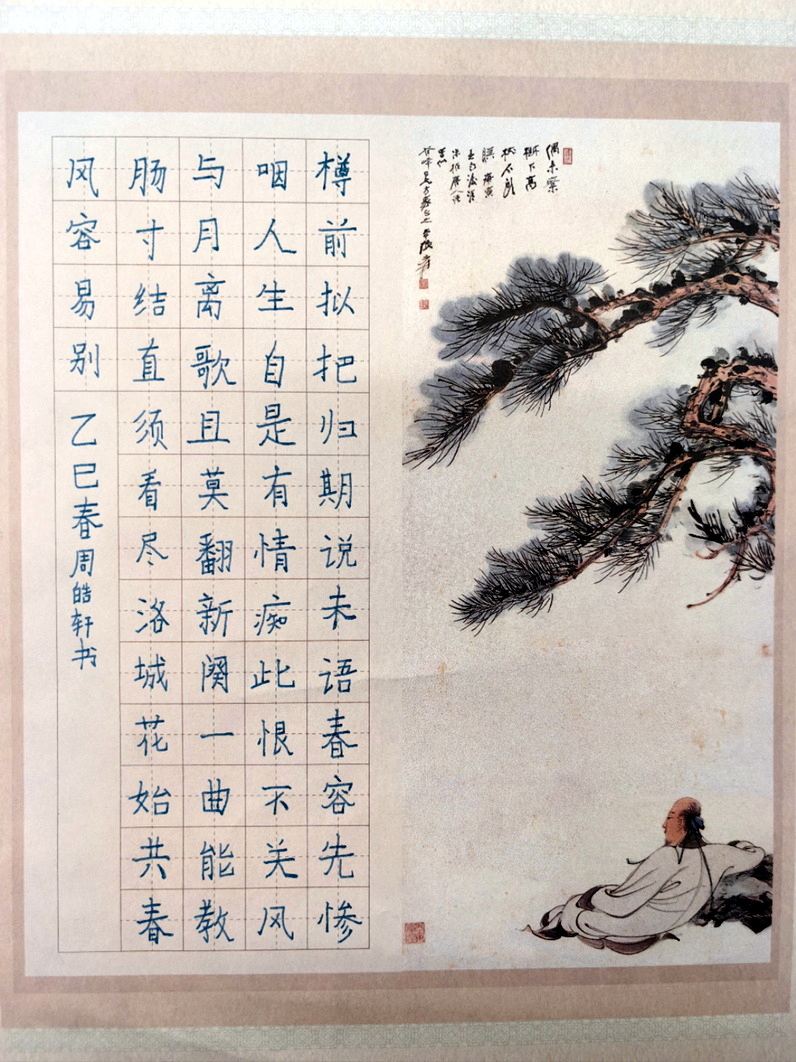 樽前拟把归期说未语春容先惨
咽人生自是有情痴此恨不关风
与月离歌且莫翻新阕一曲能教
肠寸结直须看尽洛城花始共春
风容易别
乙巳春周皓轩书